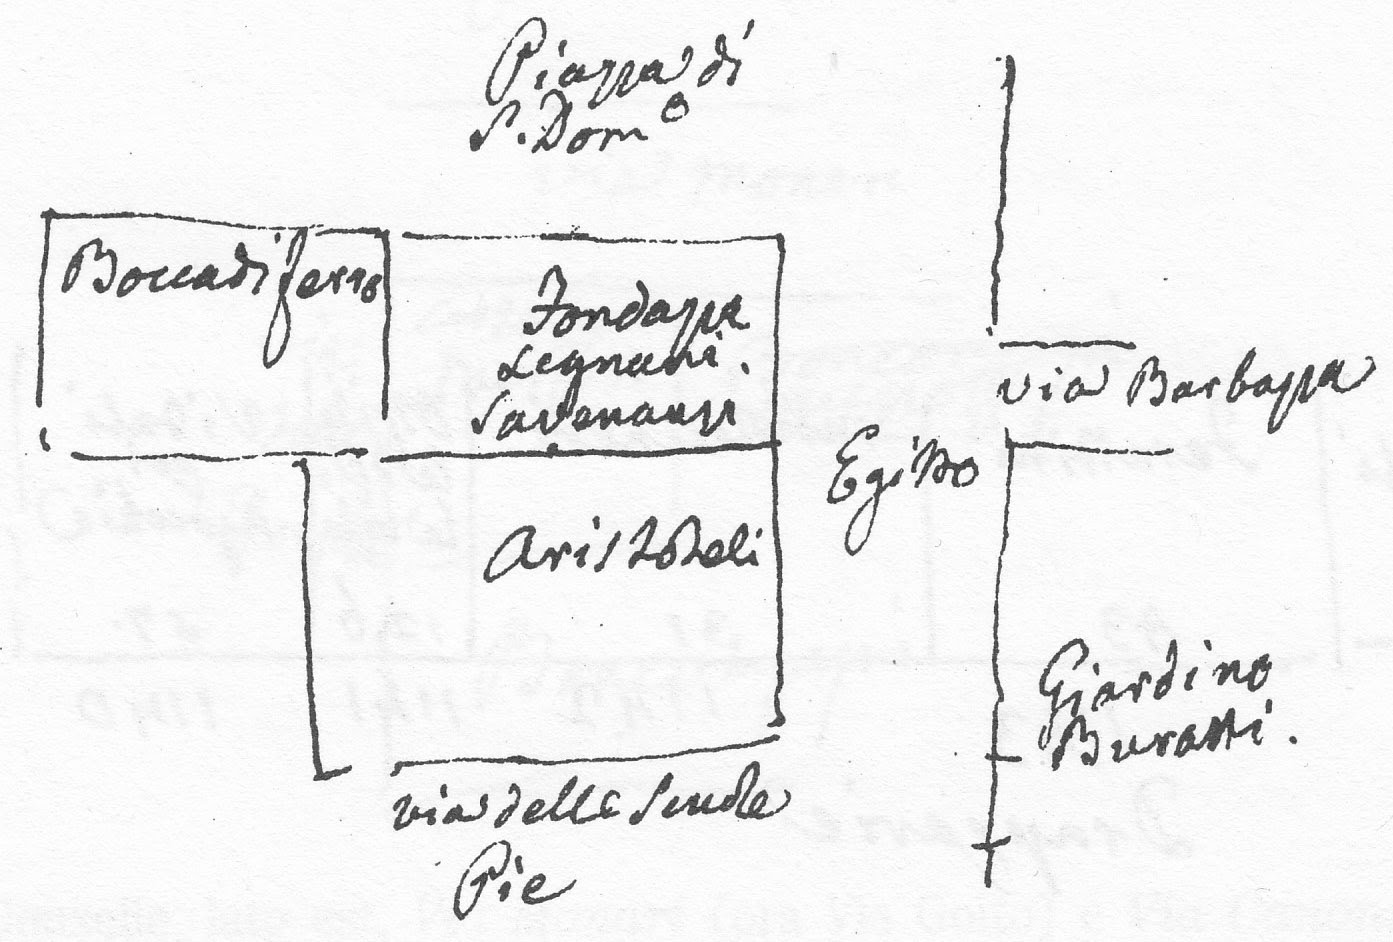 Piazza di
S. Dom.º
Boccadiferro
Fondazza
Legnani.
Savenazzi
via Barbazza
Egitto
Aristoteli
Giardino
Buratti.
via delle Scuole
Pie